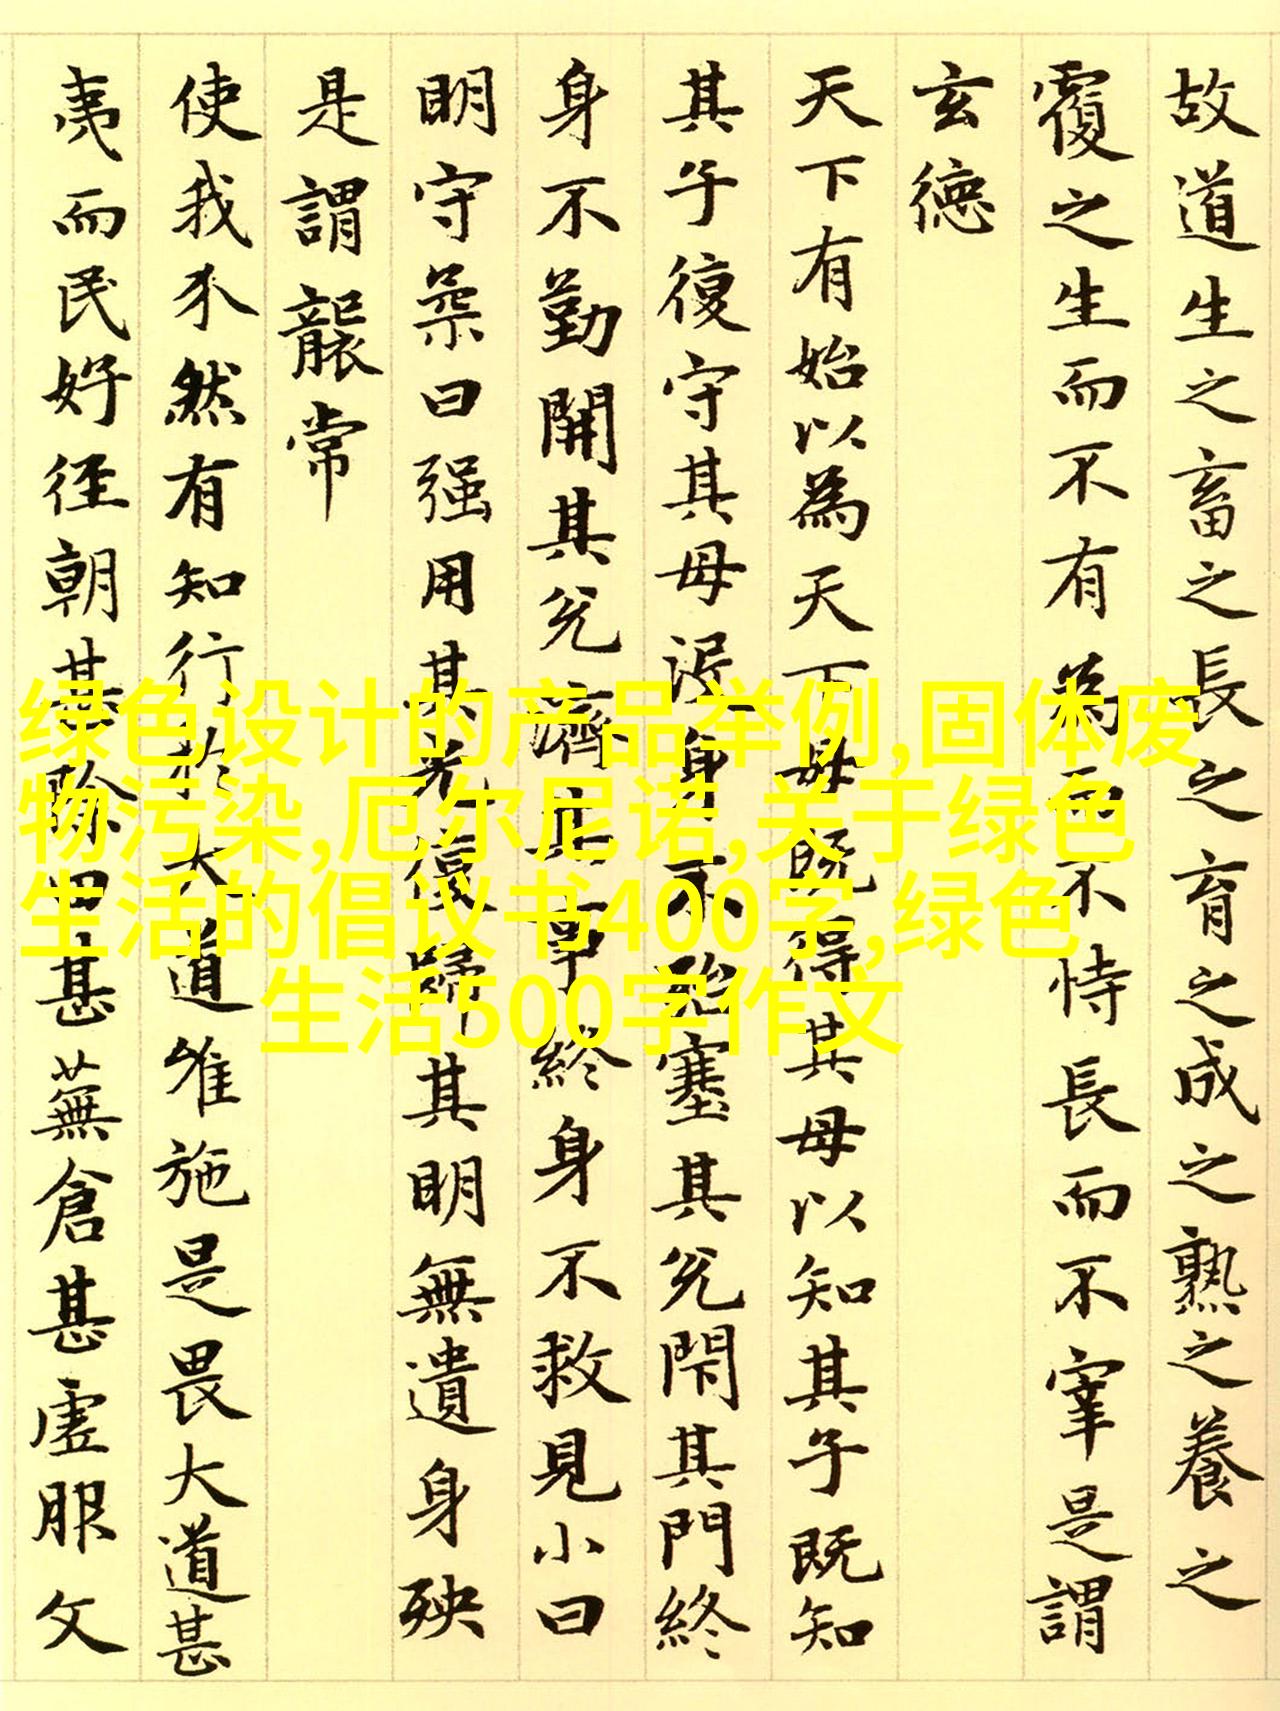 故道生之畜之長之育之成之熟之養之
覆之生而不有為而不恃長而不宰是謂
玄德
天下有始以為天下母既得其母以知其子既知
其子復守其母没身不殆塞其兊閇其門終
身不勤開其兊濟其事終身不救見小曰
明守柔曰强用其光復歸其明無遺身殃
是謂襲常
使我介然有知行於大道唯施是畏大道甚
夷而民好徑朝甚除田甚蕪倉甚虚服文
绿色设计的产品举例,固体废
物污染,厄尔尼诺,关于绿色
生活的倡议书400字,绿色
生活500字作文